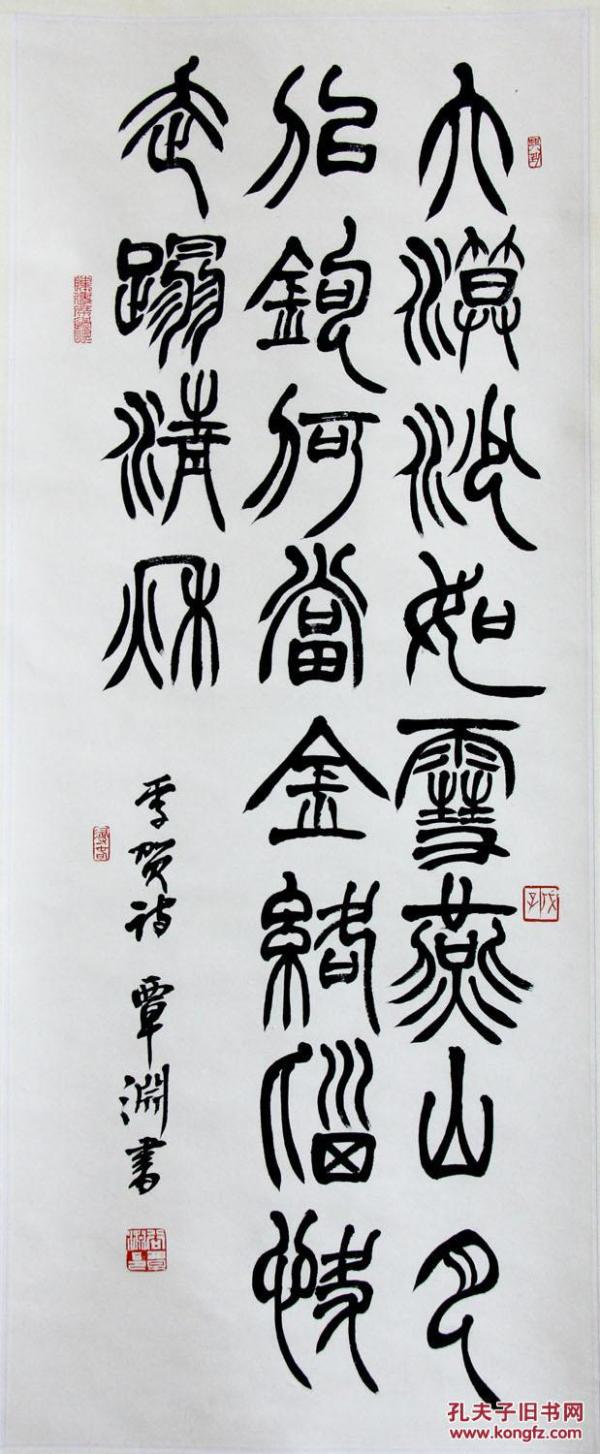 大漠沙如雪燕山月
似鉤何當金絡腦快
走蹋清秋
李贺诗 覃淵書
孔夫子旧书网
www.kongfz.com